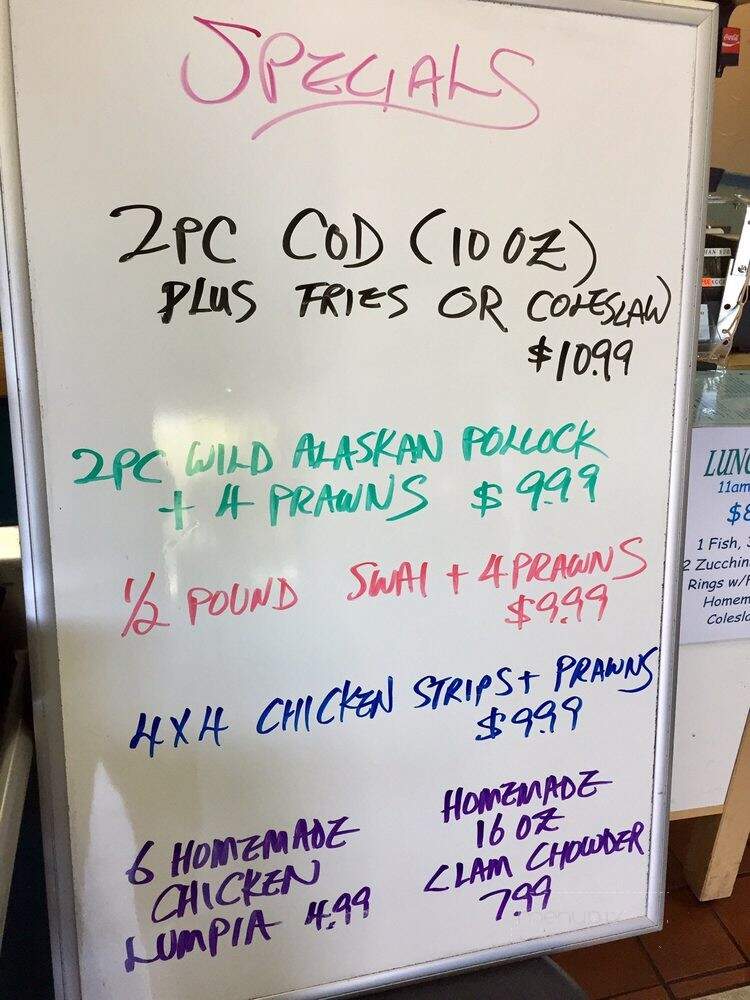 SPECIALS
2PC COD (10 OZ)
PLUS FRIES OR COLESLAW
$10.99
2PC WILD ALASKAN POLLOCK
+ 4 PRAWNS $9.99
1/2 POUND SWAI + 4 PRAWNS
$9.99
4X4 CHICKEN STRIPS + PRAWNS
$9.99
6 HOMEMADE
CHICKEN
LUMPIA 4.99
HOMEMADE
16 OZ
CLAM CHOWDER
7.99
Coca-Cola
LUNC
11am
$8
1 Fish,
2 Zucchin
Rings w/
Homem
Colesl